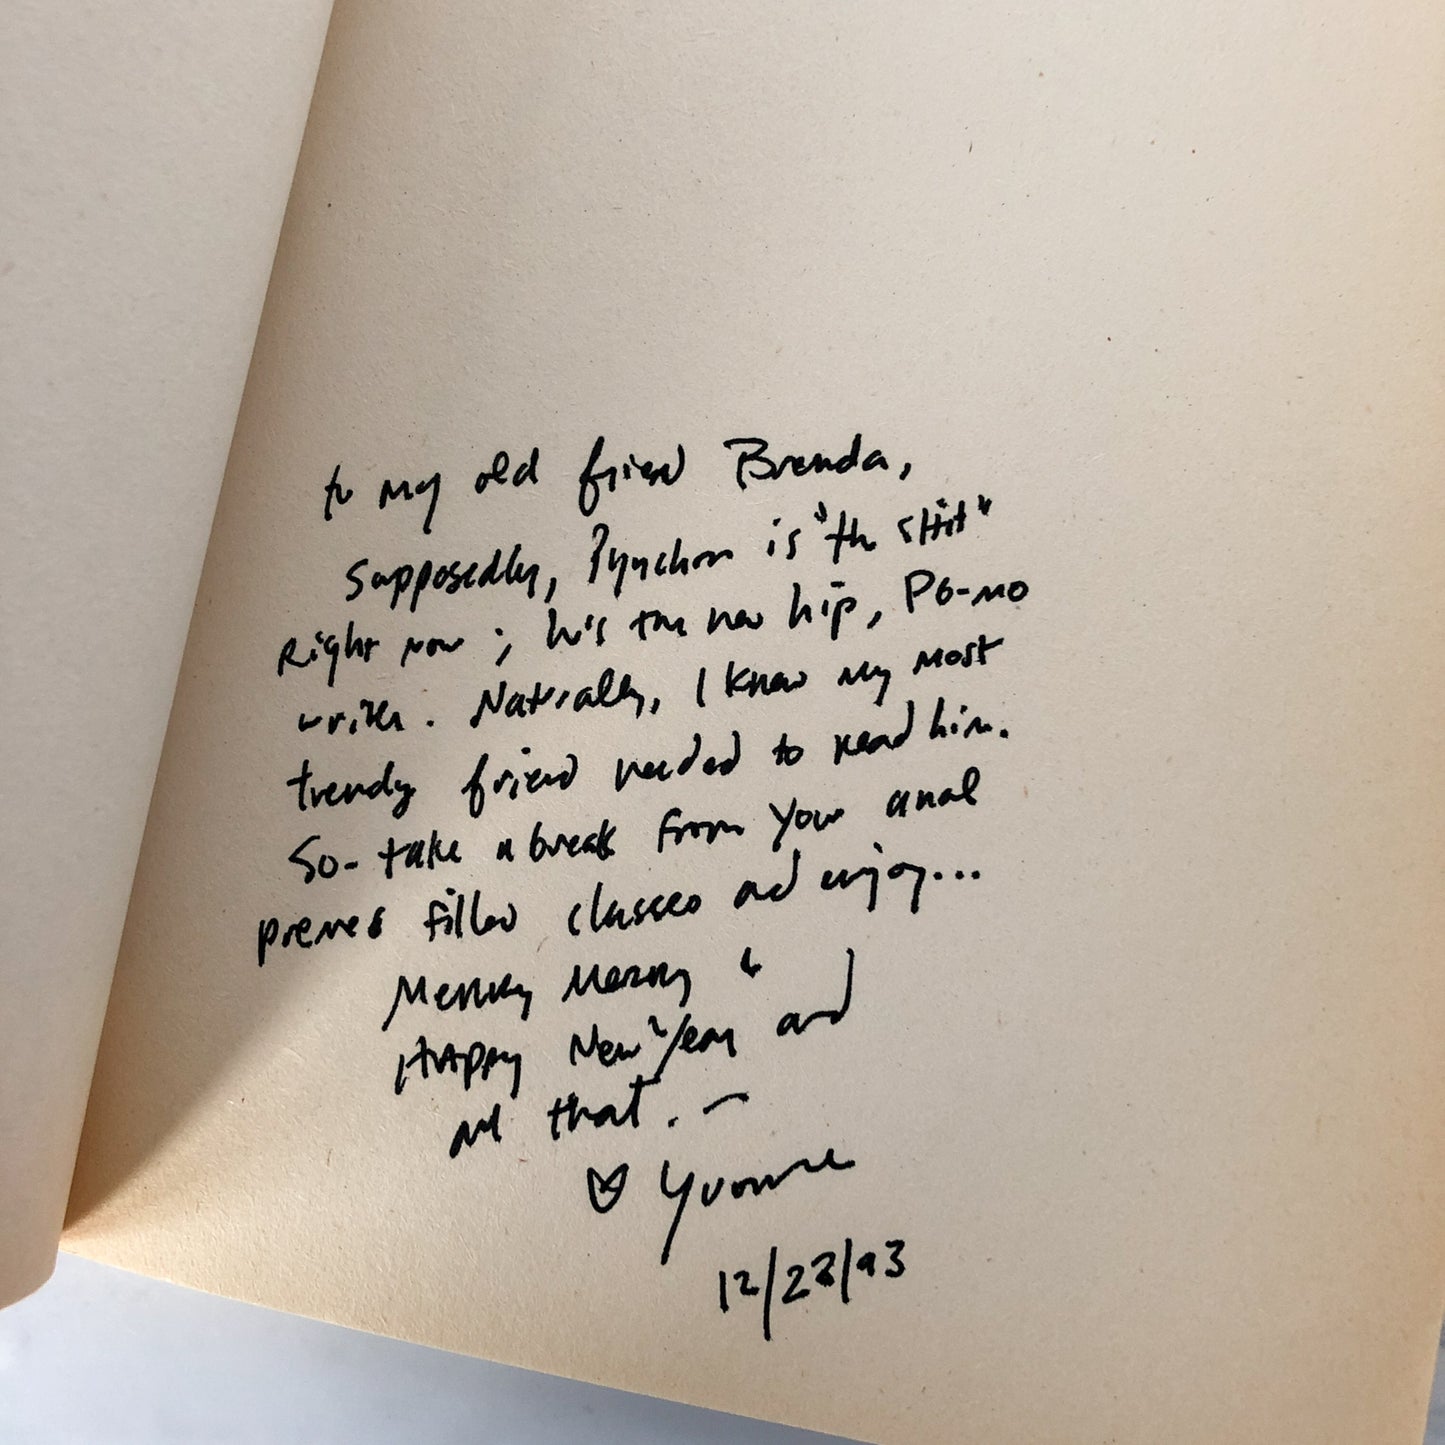 to my old friend Brenda,
Supposedly, Pynchon is "the shit"
Right now; he's the new hip, Po-Mo
writer. Naturally, I knew my most
trendy friend needed to read him.
So- take a break from your anal
premed filled classes and enjoy...
Merry Merry &
Happy New Year and
all that. -
♡ Yvonne
12/23/93